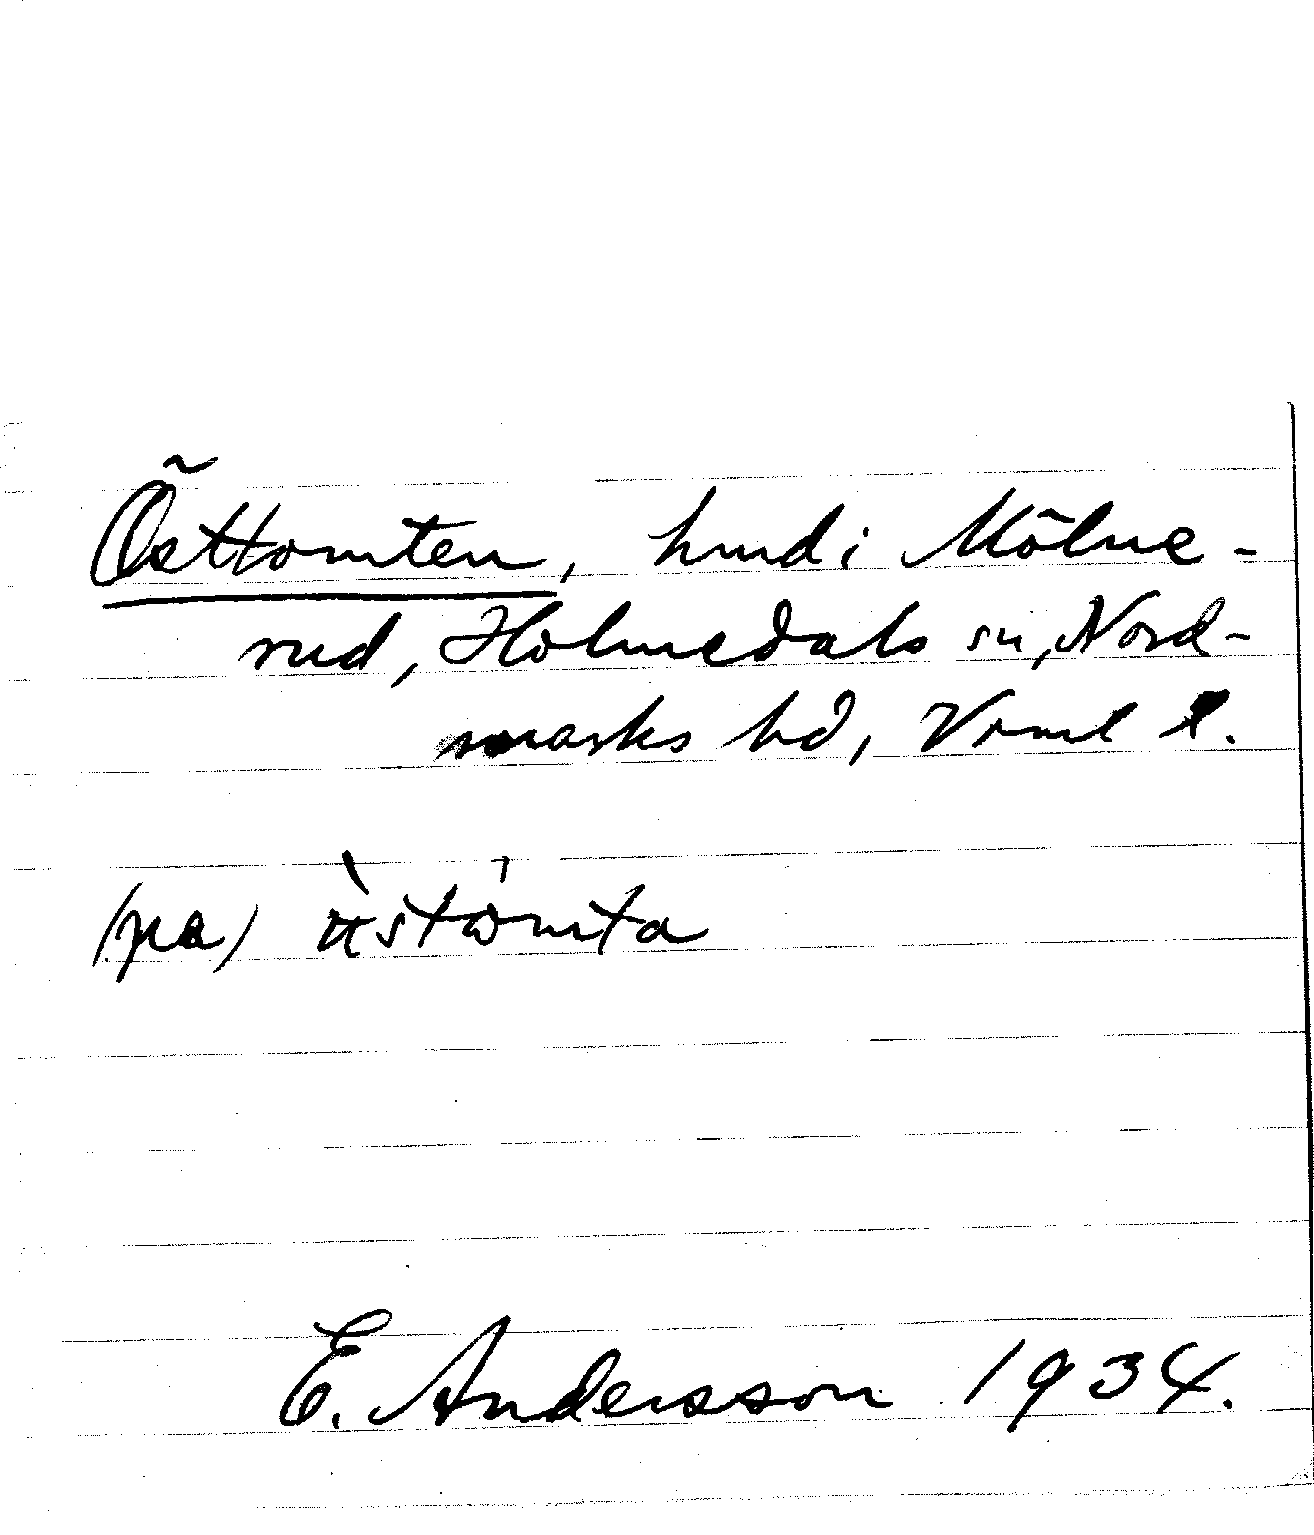 Östtomten, hmd i Mölne-
rud, Holmedals sn, Nord-
marks hd, Vrml l.
(pa)
E. Andersson 1934.